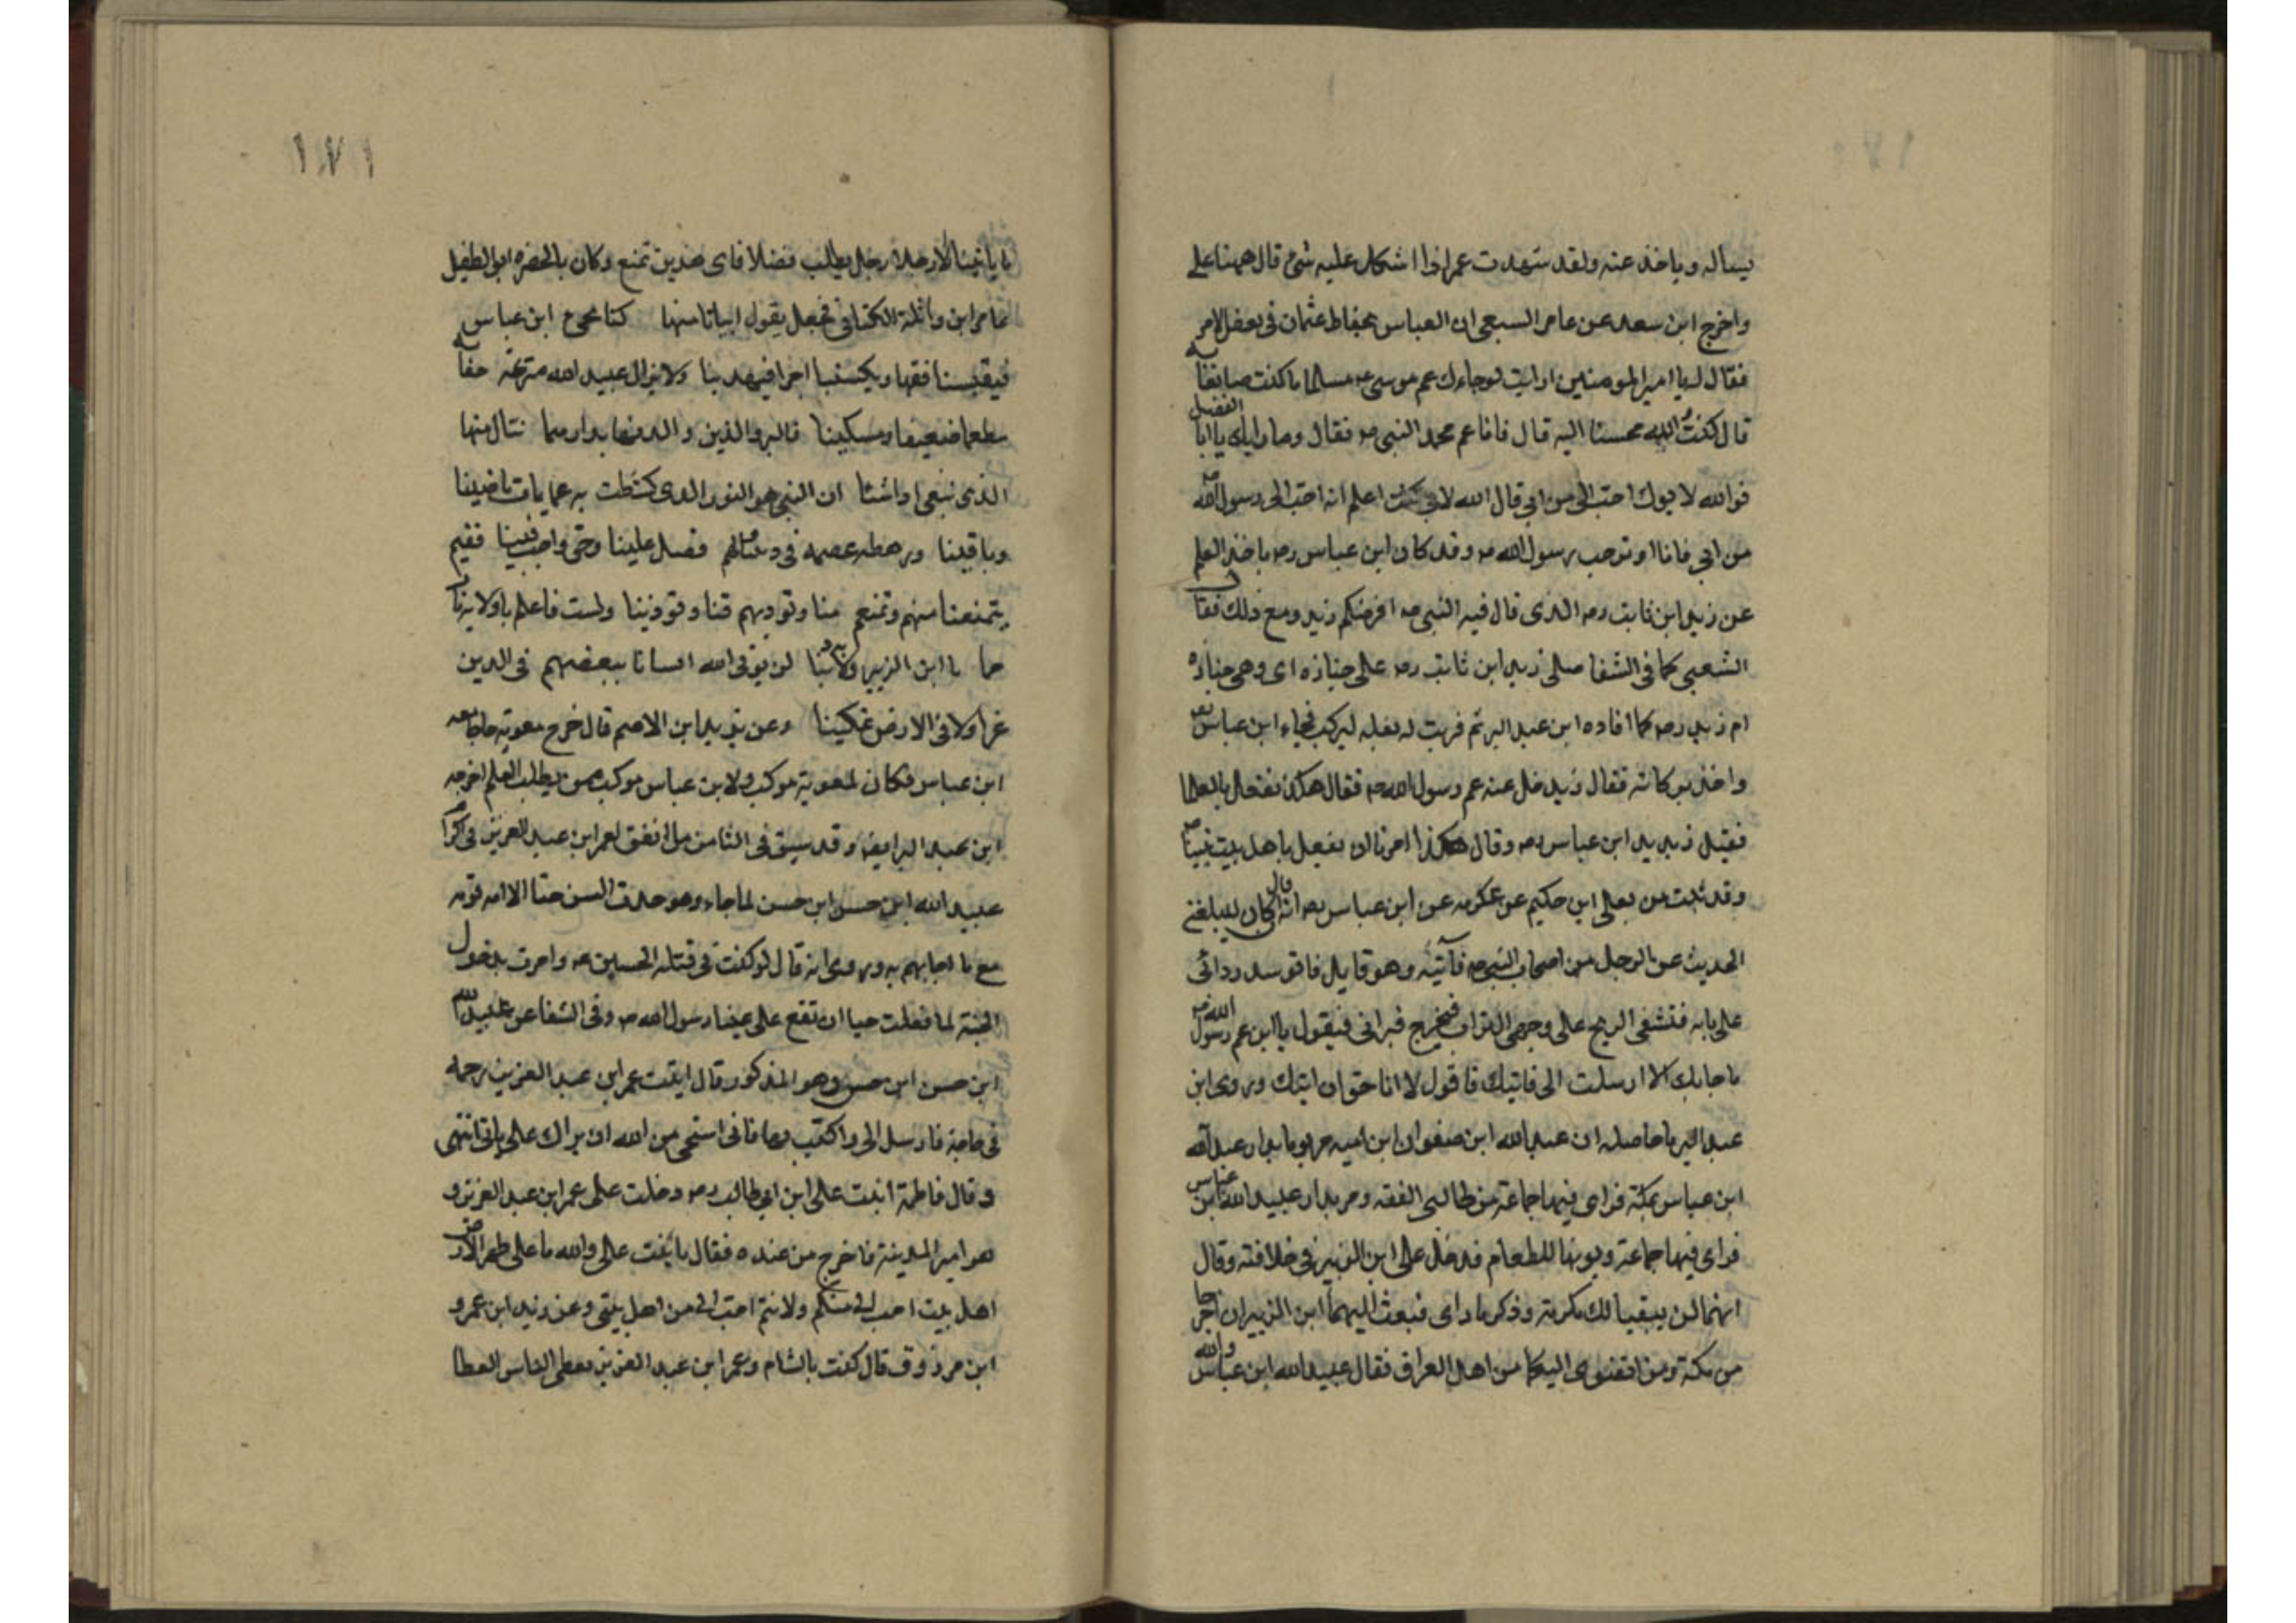 يساله وياخذ عنه ولقد شهدت عمر اذا اشكل عليه شئ قال ههنا علي
واخرج ابن سعد عن عامر السبعي ان العباس عثمان في بعض الامر
فقال له يا امير المومنين ارايت لو جاءك عم موسى عه مسلما ما كنت صانعا به
قال كنت والله محسنا اليه قال فانا عم محمد النبي صه فقال وما رايك يا ابا الفضل
فوالله لابوك احب الى من ابي قال الله لاني كنت اعلم انه احب الى رسول الله صه
من ابي فانا اوثر حب رسول الله صه وقد كان ابن عباس رضه ياخذ العلم
عن زيد ابن ثابت رضه الذى قال فيه النبي صه افرضكم زيد ومع ذلك فقال
الشعبي كما في الشفا صلى زيد ابن ثابت رضه على جنازه اى وهى جنازه
ام زيد رضه كما افاده ابن عبد البر ثم قربت له بغله ليركب فجاء ابن عباس رضه
واخذ بركابه فقال زيد خل عنه عم رسول الله صه فقال هكذا نفعل بالعلما
فقبل زيد يد ابن عباس رضه وقال هكذا امرنا ان نفعل باهل بيت نبينا صه
وقد ثبت من يعلى ابن حكيم عن عكرمه عن ابن عباس رضه انه قال كان ليبلغني
الحديث عن الرجل من اصحاب النبي صه فآتيه وهو قايل فاتوسد ردائى
على بابه فتسفى الريح على وجهى التراب فيخرج فيرانى فيقول يا ابن عم رسول الله صه
ما جابك الا ارسلت الى فاتيك فاقول لا انا احق ان ايتك وروى ابن
عبد البر ما حاصله ان عبد الله ابن صفوان ابن اميه مر يوما بدار عبد الله
ابن عباس بمكة فراى فيها جماعة من طالبى الفقه ومر بدار عبيد الله ابن عباس
فراى فيها جماعة للطعام فدخل على ابن الزبير في خلافته وقال
انهما لن يبقيا لك مكرمة وذكر ما راى فبعث اليهما ابن الزبير ان اخرجا
من مكة ومن اليكما من اهل العراق فقال عبيد الله ابن عباس والله
١٧١
ما ياتينا الا رجلان رجل يطلب فضلا فاى هذين تمنع وكان بالحضره ابو الطفيل
عامر ابن واثلة الكناني فجعل يقول ابياتا منها كنا نجى ابن عباس
فيقبسنا فقها ويكسبنا اجرا فيهدينا ولا يزال عبيد الله مترعة جفانه
مطعما ضعيفا ومسكينا فالبر والدين والدنيا بدارهما ننال منها
الذى نبغى اذا شئنا ان النبي هو النور الذى كشطت به عمايات ماضينا
وباقينا ورهطه عصمه في ديننا لهم فضل علينا وحق واجب فينا ففيم
تمنعنا منهم وتمنعهم منا وتوذيهم فينا وتوذينا ولست فاعلم باولاهم
رحما يا ابن الزبير ولا به دينا لن يوتى الله انسانا ببغضهم في الدين
عزا ولا في الارض تمكينا وعن يزيد ابن الاصم قال خرج معوية حاجا معه
ابن عباس فكان لمعوية موكب ولابن عباس موكب ممن يطلب العلم اخرجه
ابن عبد البر ايضا وقد سبق في الثامن ما اتفق لعمر ابن عبد العزيز في اكرام
عبد الله ابن حسن ابن حسن لما جاءه وهو حدث السن
مع ما اجابهم به وروى انه قال لو كنت في قتلة الحسين عه وامرت بدخول
الجنة لما فعلت حيا ان تقع على عينا رسول الله صه وفي الشفا عن عبد الله
ابن حسن ابن حسن وهو المذكور قال اتيت عمر ابن عبد العزيز رحمه
في حاجة فارسل الى واكتب بها فانى استحى من الله ان يراك على بابى انتهى
وقال فاطمة ابنت على ابن ابي طالب رضه دخلت على عمر ابن عبد العزيز و
هو امير المدينة فاخرج من عنده فقال يا بنت على والله ما على ظهر الارض
اهل بيت احب الى منكم ولانتم احب الى من اهل بيتى وعن زيد ابن عمرو
ابن مرزوق قال كنت بالشام وعمر ابن عبد العزيز يعطى الناس العطا